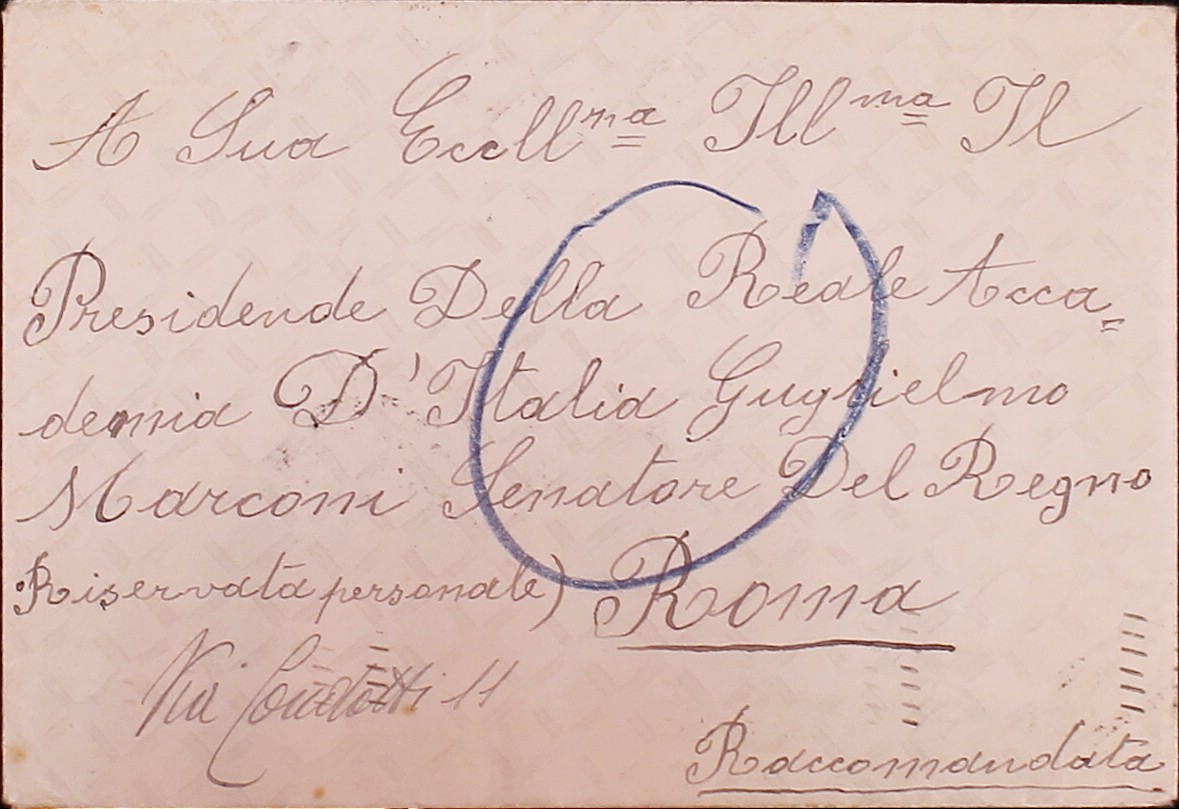 A Sua Eccllnza Illma Il
Presidende Della Reale Acca=
demia D'Italia Guglielmo
Marconi Senatore Del Regno
Riservata personale) Roma
Via Condotti 11
Raccomandata